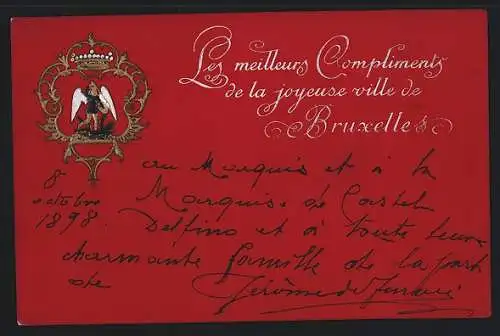 Les meilleurs Compliments
de la joyeuse ville de
Bruxelles
8
octobre
1898.
au Marquis et à la
Marquise de Castel
Delfino et à toute leur
charmante famille de la part
de
Jérôme de